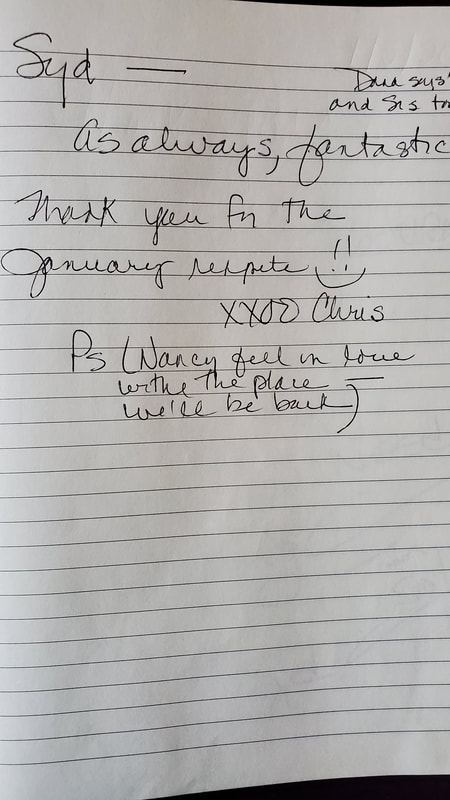 Syd —
Dad says
and Sis to
As always, fantastic
Thank you for the
January respite !!
XXOO Chris
Ps (Nancy fell in love
withe the place —
we'll be back)